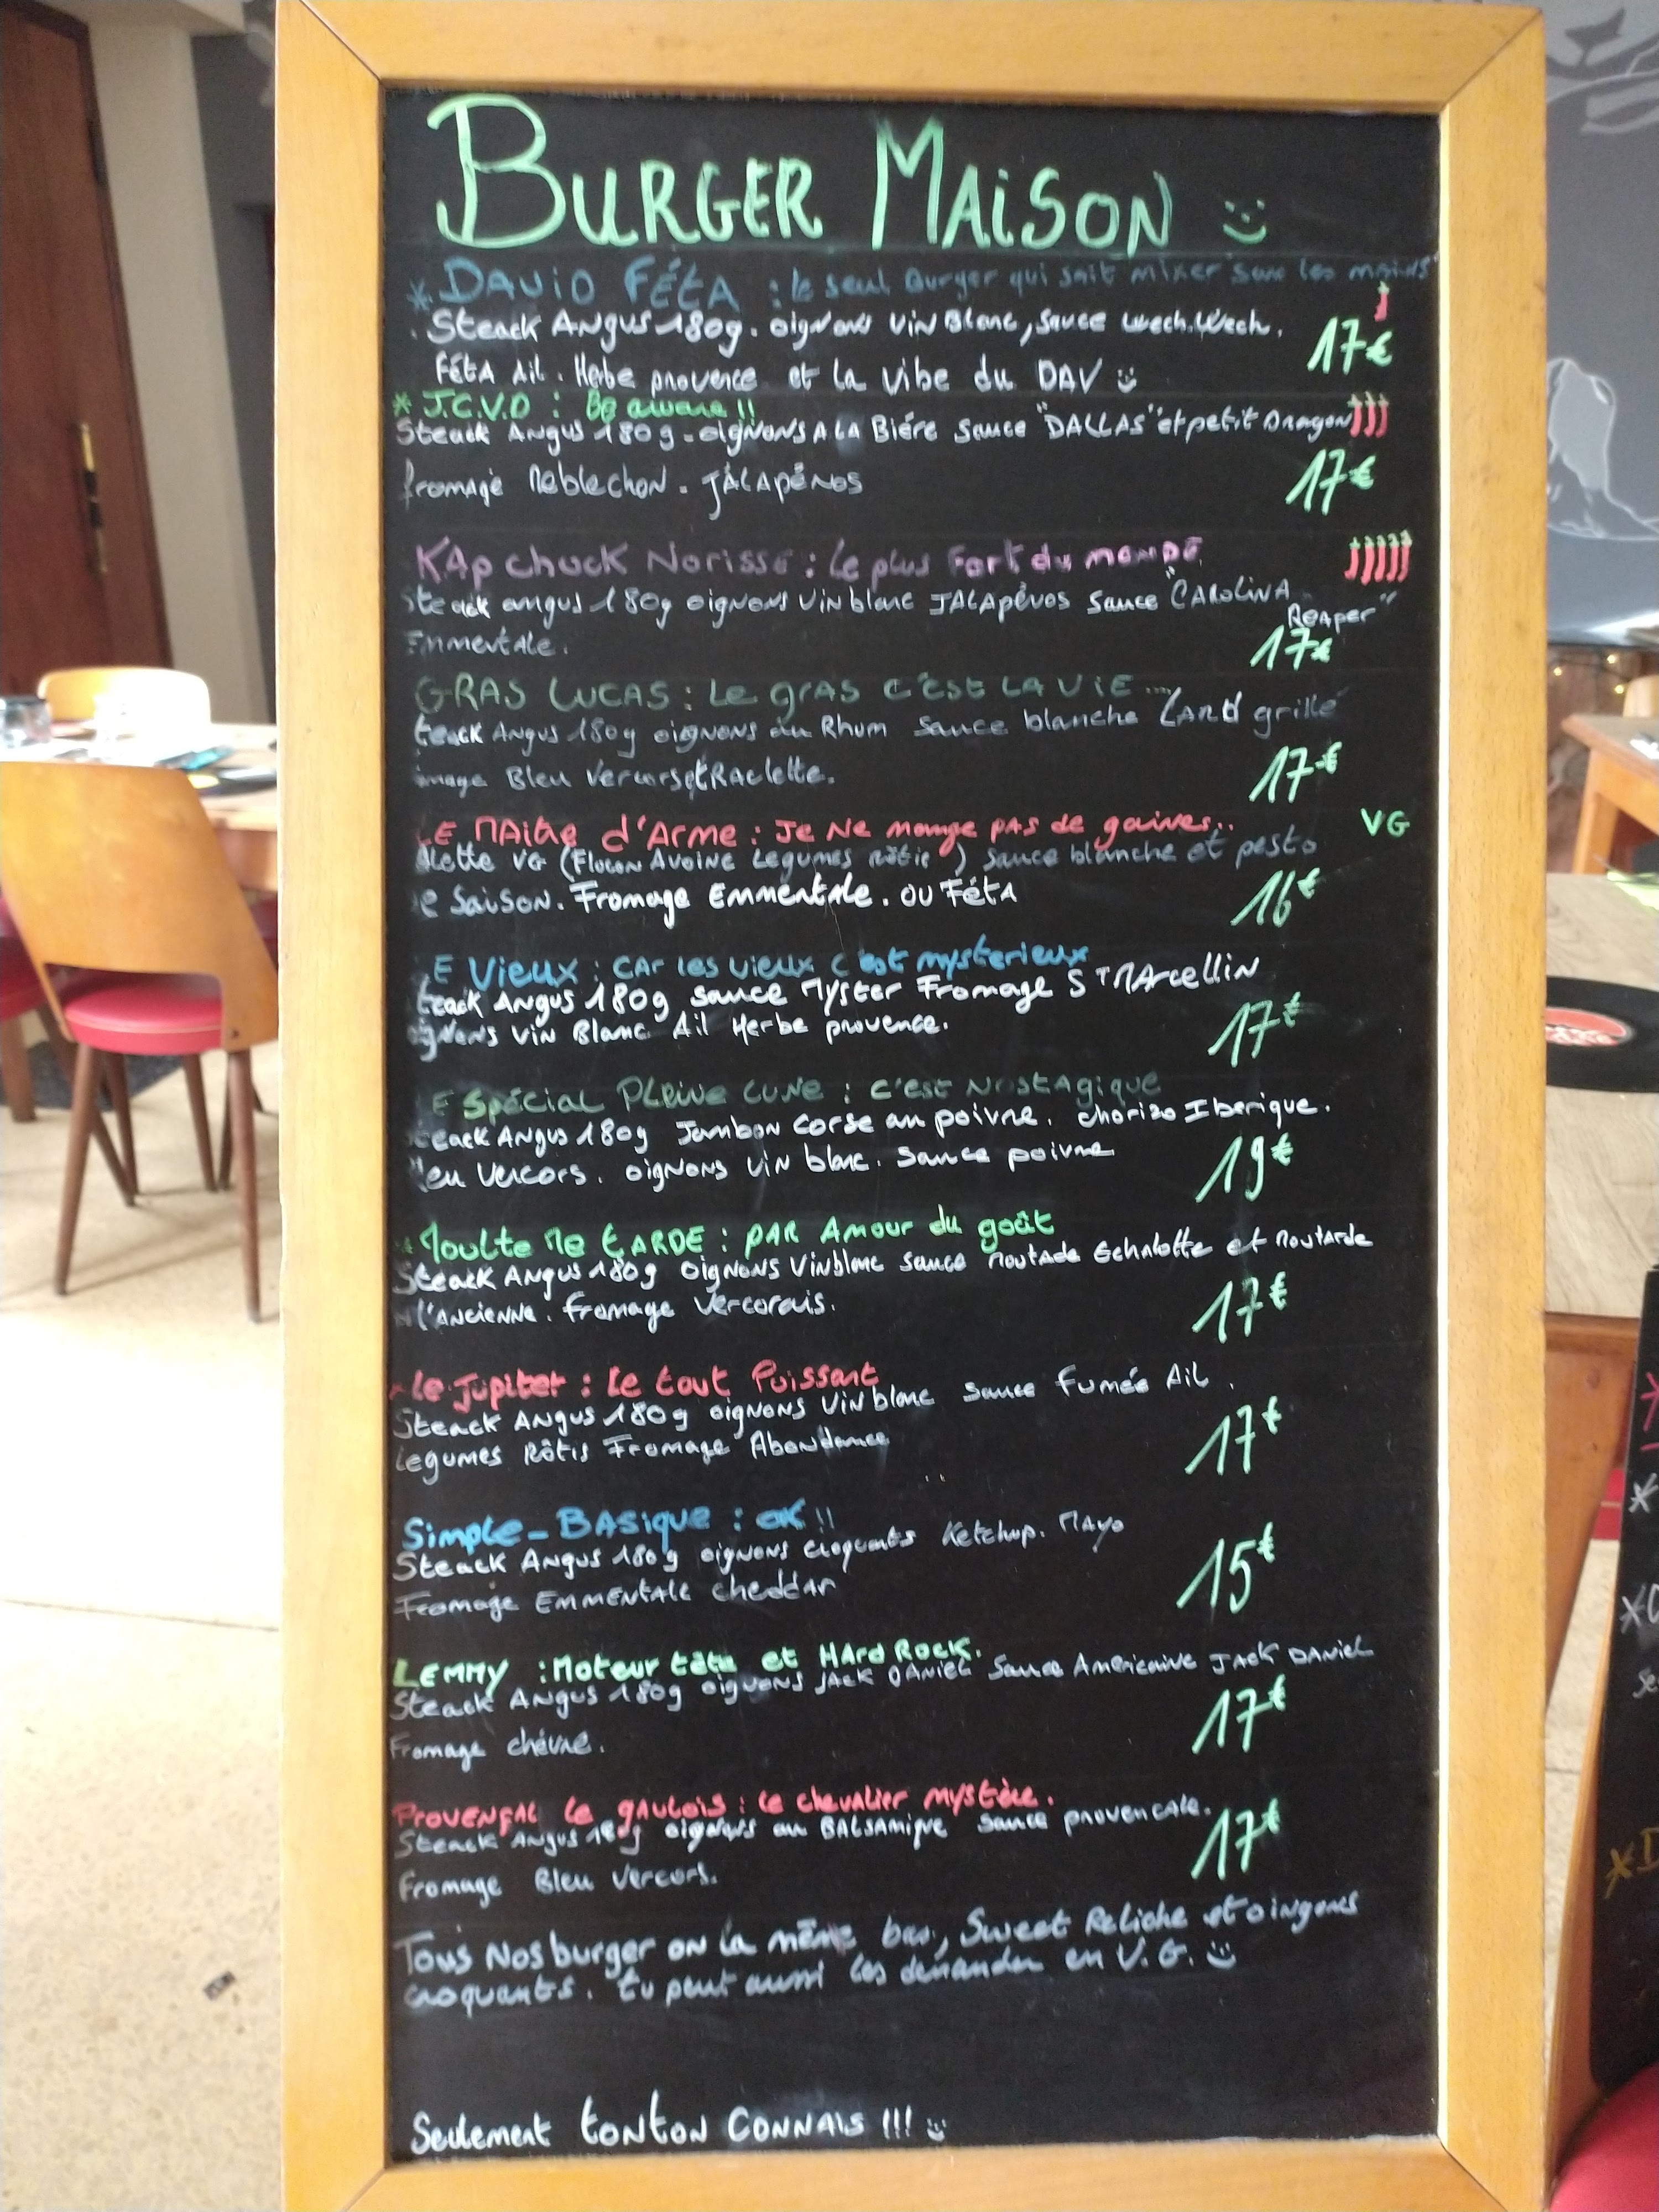 BURGER MAiSON
* DAViD FÉTA : le seul Burger qui sait mixer sans les mains
Steack ANgus 180g. oignons Vin Blanc, sauce Wech.Wech.
17€
FéTA Ail. Herbe provence et la vibe du DAV
* J.C.V.D : Be aware !!
Steack Angus 180g - oignons A LA Biére sauce "DALLAS" et petit Dragon
fromage Reblechon. JALApéNos
17€
KAp chuck Norisse : Le plus Fort du monde
Steack angus 180g oignons Vin blanc JALApéNos Sauce "CAROLiNA
REAPER"
Emmentale.
17€
GRAS LUCAS : Le gras C'EST LA ViE...
teack Angus 180g oignons au Rhum sauce blanche LARD grillé
omage Bleu Vercors et RAclette.
17€
LE MAitre d'Arme : Je Ne mange pas de graines..
VG
alette VG (Flocon AvoiNe Legumes Rôtie) sauce blanche et pesto
e SaisoN. Fromage Emmentale. ou Féta
16€
E Vieux : CAr les vieux c'est mysterieux
teack ANgus 180g sauce Myster Fromage St MArcelliN
ignons ViN Blanc Ail Herbe provence.
17€
E Spécial PLeiNe LUNe : C'est Nostagique
teack Angus 180g JamboN Corse au poivre. chorizo Iberique.
leu Vercors. oignoNs ViN blanc. sauce poivre
19€
Moulte Me tARDE : pAR Amour du goût
Steack ANgus 180g oignoNs Vin blanc sauce Moutade Echalotte et Moutarde
l'ANCiENNE. fromage Vercorais.
17€
Le Jupiter : Le tout Puissant
Steack ANgus 180g oignoNs ViN blanc sauce Fumée Ail.
Legumes Rôtis Fromage Abondance
17€
Simple-BASique : OK !!
Steack ANgus 180g oignoNs croquants Ketchup. MAyo
Fromage EMMENtALe cheddar
15€
LEMMY : Moteur tête et HArd RocK.
Steack ANgus 180g oignoNs JACK DANiEL sauce AmericaiNe JACK DANiEL
Fromage chévre.
17€
PROVENÇAL Le gAuLois : Le chevalier mystère.
Steack Angus 180g oignons au BALsamique sauce provencale.
Fromage Bleu Vercors.
17€
Tous Nos burger oN la même base, Sweet Reliche et oingons
croquants. tu peut aussi les demander en V.G.
Seulement tonton CONNAIS !!!